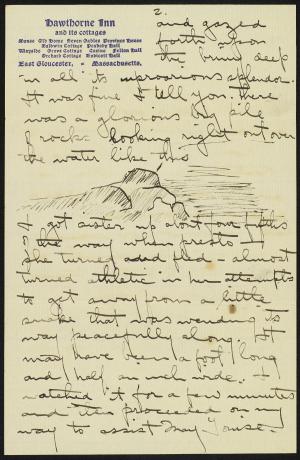 Hawthorne Inn
and its cottages
Manse Old Home Seven Gables Province House
Baldwin Cottage Peabody Hall
Wayside Grove Cottage Casino Fulton Hall
Orchard Cottage Endicott Hall
East Gloucester, Massachusetts.
2.
and gazed
forth upon
the briny deep
in all its uproarious splendor.
It was fine I tell you. Here
was a glorious big pile
of rocks looking right out over
the water like this
I got sister up about four fifths
of the way when presto!
she turned and fled - almost
turned athletic in her attempts
to get away from a little
snake that was wending its
way peacefully along. It
may have been a foot long
and half an inch wide. I
watched it for a few minutes
and then proceeded on my
way to assist